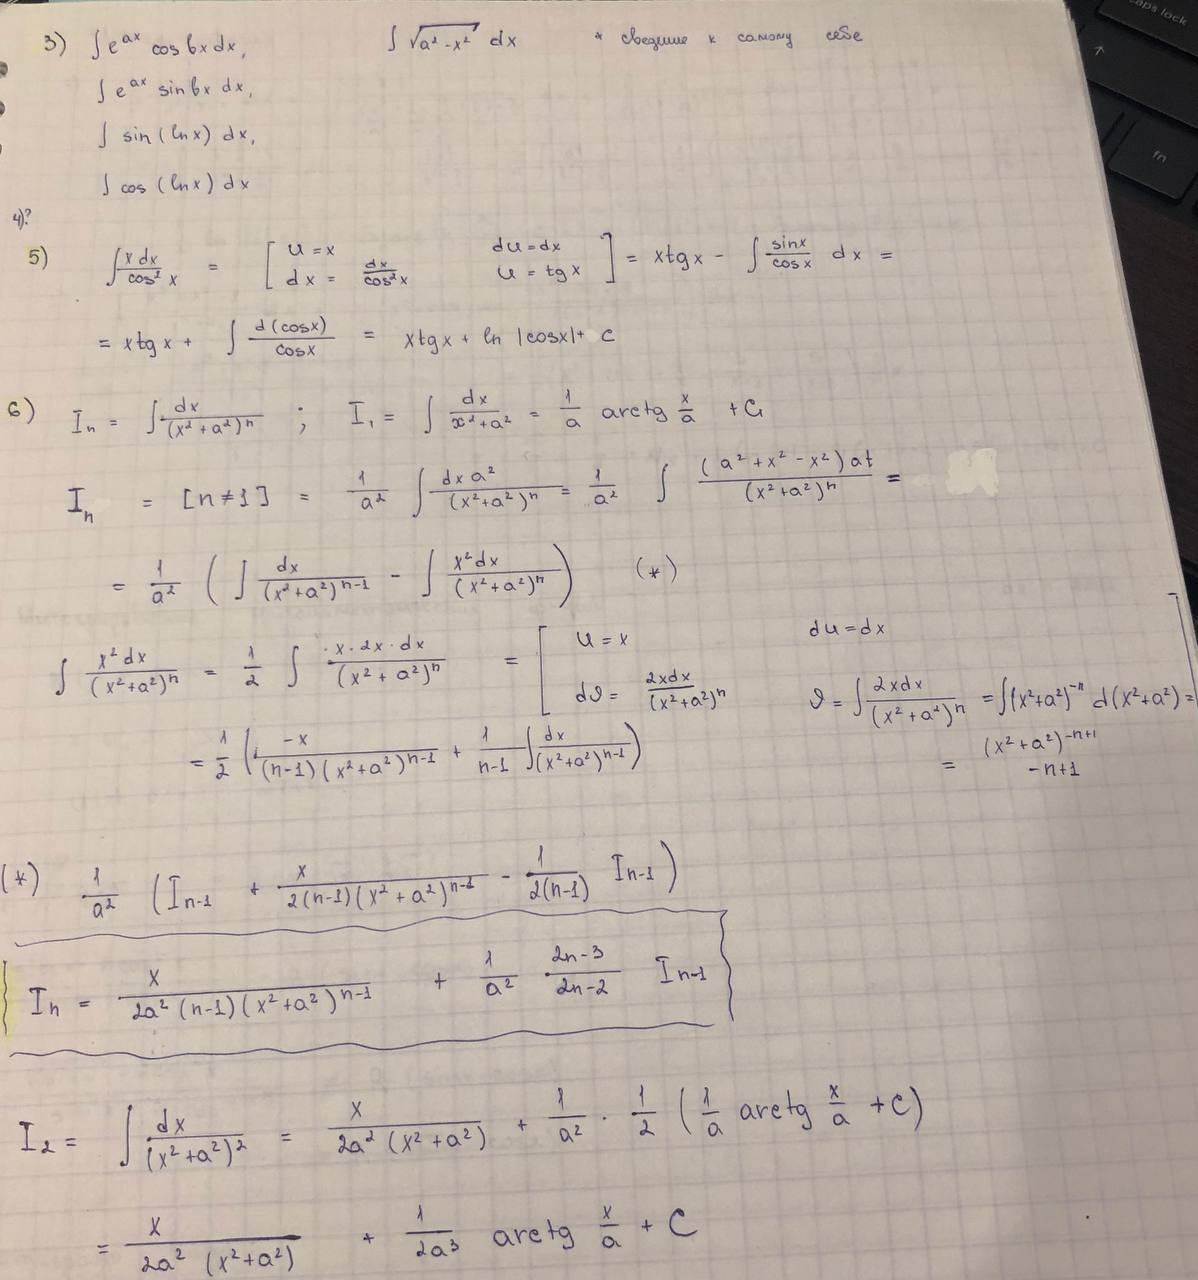 3) ∫ e^{ax} cos bx dx, ∫ √(a² - x²) dx * сведение к самому себе
∫ e^{ax} sin bx dx,
∫ sin (ln x) dx,
∫ cos (ln x) dx
4)?
5) ∫ x dx / cos² x = [ u = x du = dx
dx = dx / cos² x u = tg x ] = x tg x - ∫ sin x / cos x dx =
= x tg x + ∫ d(cos x) / cos x = x tg x + ln |cos x| + C
6) I_n = ∫ dx / (x² + a²)^n ; I_1 = ∫ dx / (x² + a²) = 1/a arctg x/a + C_1
I_n = [n ≠ 1] = 1/a² ∫ dx a² / (x² + a²)^n = 1/a² ∫ (a² + x² - x²) at / (x² + a²)^n =
= 1/a² ( ∫ dx / (x² + a²)^{n-1} - ∫ x² dx / (x² + a²)^n ) (*)
∫ x² dx / (x² + a²)^n = 1/2 ∫ x · 2x · dx / (x² + a²)^n = [ u = x du = dx
dϑ = 2x dx / (x² + a²)^n ϑ = ∫ 2x dx / (x² + a²)^n = ∫ (x² + a²)^{-n} d(x² + a²) =
= (x² + a²)^{-n+1} / -n+1 ]
= 1/2 ( -x / (n-1)(x² + a²)^{n-1} + 1/(n-1) ∫ dx / (x² + a²)^{n-1} )
(*) 1/a² ( I_{n-1} + x / 2(n-1)(x² + a²)^{n-1} - 1 / 2(n-1) I_{n-1} )
I_n = x / 2a² (n-1)(x² + a²)^{n-1} + 1/a² (2n-3)/(2n-2) I_{n-1}
I_2 = ∫ dx / (x² + a²)² = x / 2a² (x² + a²) + 1/a² · 1/2 ( 1/a arctg x/a + C )
= x / 2a² (x² + a²) + 1/2a³ arctg x/a + C